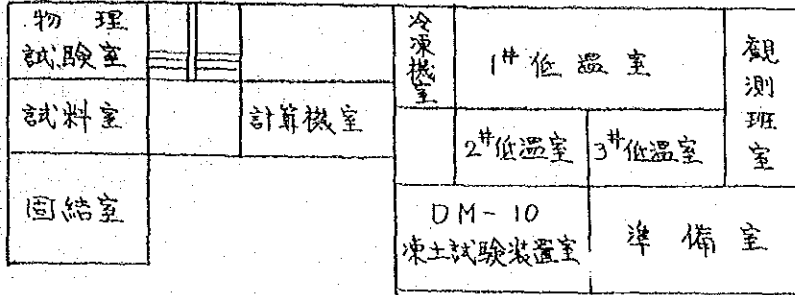 物理
試験室
試料室
計算機室
固結室
冷凍機室
1#低温室
2#低温室
3#低温室
観測班室
DM-10
凍土試験装置室
準備室